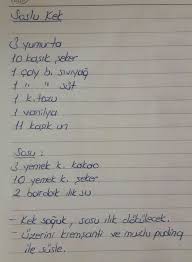 Soslu Kek
3 yumurta
10 kaşık şeker
1 çay b. sıvıyağ
1 " " süt
1 k. tozu
1 vanilya
11 kaşık un
Sosu :
3 yemek k. kakao
10 yemek k. şeker
2 bardak ılık su
- Kek soğuk, sosu ılık dökülecek.
- Üzerini kremşanti ve muzlu puding
ile süsle.